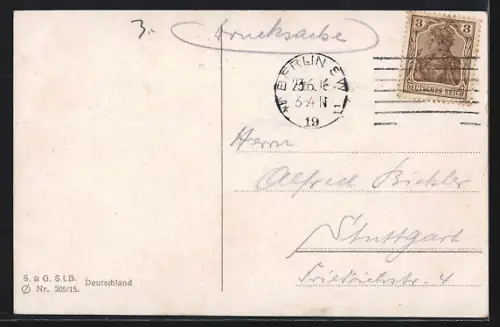 3.
Drucksache
3 3
DEUTSCHES REICH
BERLIN SW
23.6.16
3-4 N
19
Herrn
Alfred Bickler
Stuttgart
Friedrichstr. 4
S. & G. S.i.B.
Deutschland
Nr. 205/15.